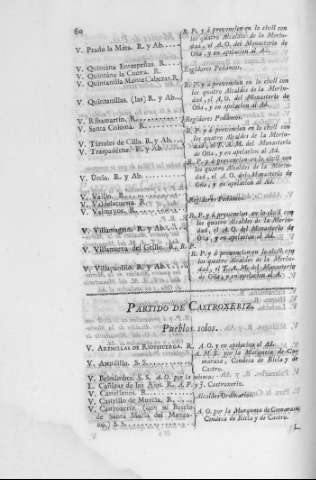 60
R. P. y á prevencion en lo civil con
V. Prado la Mata. R. y Ab.
los quatro Alcaldes de la Merin-
dad, el A. O. del Monasterio de
Oña, y en apelacion al Ad.
V. Quintana Entrepeñas. R.
V. Quintana la Cuesta. R.
V. Quintanilla Montecabezas R.
Regidores Pedáneos.
R. P. y á prevencion en lo civil con
V. Quintanillas. (las) R. y Ab.
los quatro Alcaldes de la Merin-
dad, el A. O. del Monasterio de
Oña, y en apelacion al Ad.
V. Ribamartin. R.
V. Santa Coloma. R.
Regidores Pedáneos.
R. P. y á prevencion en lo civil con
V. de Cilla. R. y Ab.
V. Traspaderne. R. y Ab.
los quatro Alcaldes de la Merin-
dad el A. M. del Monasterio de
Oña, y en apelacion al Ad.
R. P. y á prevencion en lo civil con
V. Urria. R. y Ab.
los quatro Alcaldes de la Merin-
dad, el A. O. del Monasterio de
Oña, y en apelacion al Ad.
V. R.
V. R.
V. Valmayor. R.
Regidores Pedáneos.
R. P. y á prevencion en lo civil con
V. Villamagrin. R. y Ab.
los quatro Alcaldes de la Merin-
dad, el A. O. del Monasterio de
Oña, y en apelacion al Ad.
V. Villanueva del Grillo. R. R. P.
R. P. y á prevencion en lo civil con
V. R. y Ab.
los quatro Alcaldes de la Merin-
dad, el A. M. del Monasterio
de Oña, y en apelacion al Ad.
PARTIDO DE CASTROXERIZ.
Pueblos solos.
V. ARENILLAS DE RIOPISUERGA. R. A. O. y en apelacion al Ad.
A. M. P. por la Marquesa de Ca-
V. S. S.
marasa, Condesa de Ricla y de
Castro.
V. Belbimbre. S. S. A. O. por la misma.
L. Casilla de los Ajos. R. A. P. y J. Castroxeriz.
V. R.
V. Castrillo de Murcia. R.
Alcaldes Ordinarios.
V. Castroxeriz. (con su Barrio
de Santa María del Manza-
no.) S. S.
A. O. por la Marquesa de Camarasa,
Condesa de Ricla y de Castro.
L.